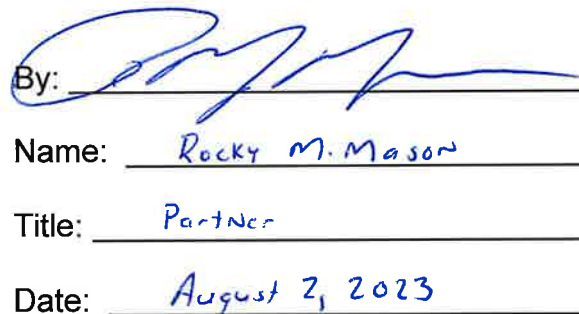 By:
Name: Rocky M. Mason
Title: Partner
Date: August 2, 2023